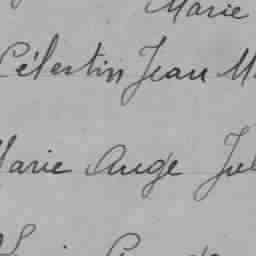 Marie
Célestin Jean M
Marie Ange Jul